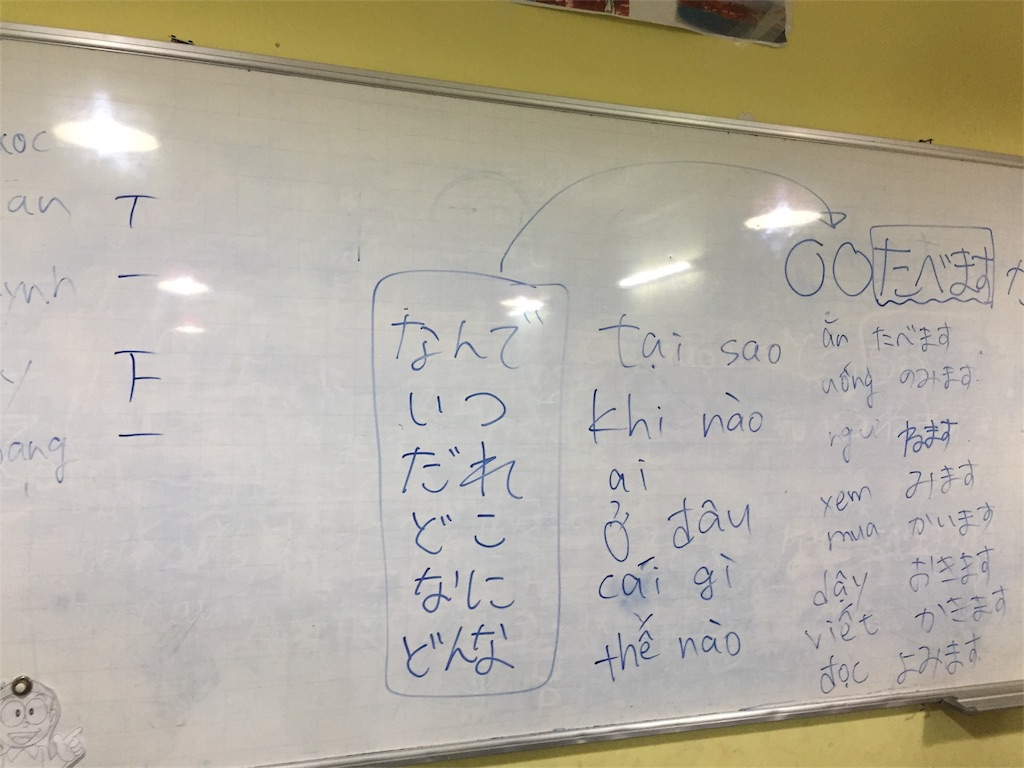 an
ynh
y
ang
〇〇たべます
なんで tại sao
いつ khi nào
だれ ai
どこ ở đâu
なに cái gì
どんな thế nào
ăn たべます
uống のみます
ngủ ねます
xem みます
mua かいます
dậy おきます
viết かきます
đọc よみます